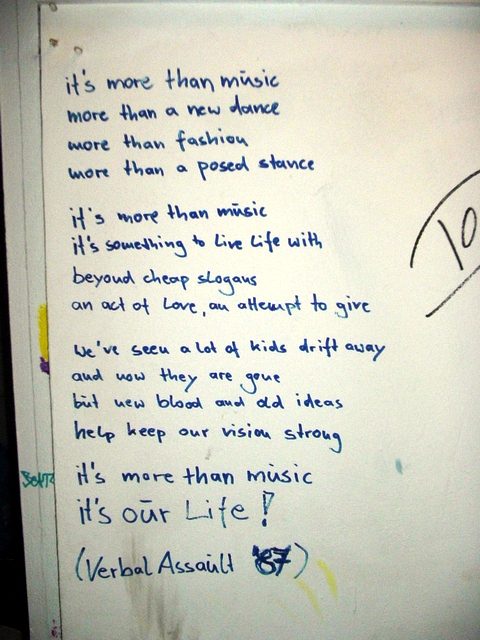 it's more than music
more than a new dance
more than fashion
more than a posed stance
it's more than music
it's something to live life with
beyond cheap slogans
an act of love, an attempt to give
we've seen a lot of kids drift away
and now they are gone
but new blood and old ideas
help keep our vision strong
it's more than music
it's our Life!
(Verbal Assault '87)
TO